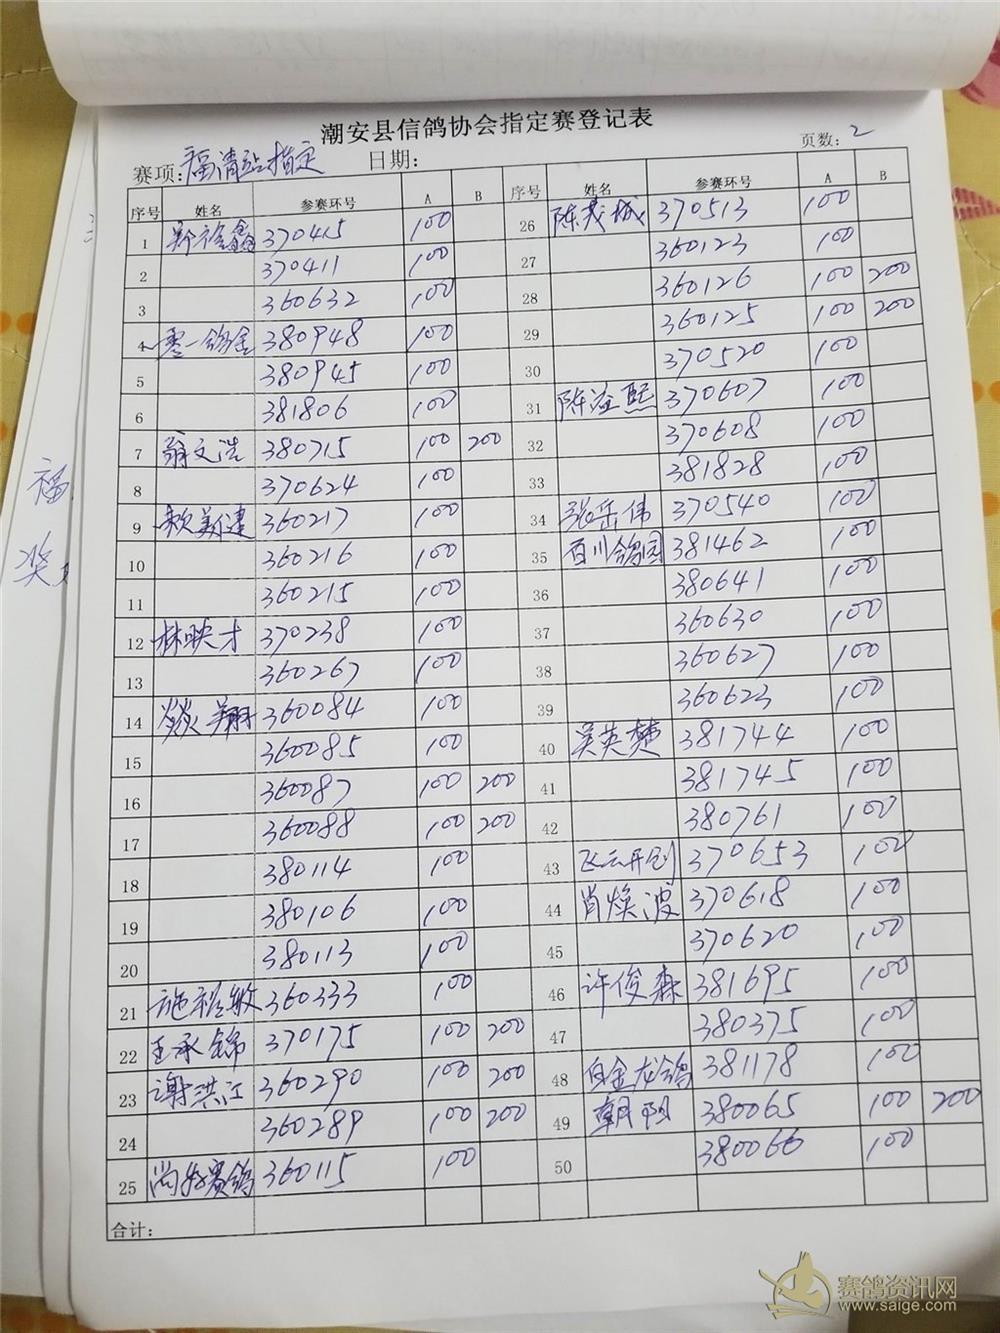 潮安县信鸽协会指定赛登记表
赛项:福清站指定 日期: 页数:2
序号 姓名 参赛环号 A B 序号 姓名 参赛环号 A B
1 370415 100 26 陈茂城 370513 100
2 370411 100 27 360123 100
3 360632 100 28 360126 100 200
4 380948 100 29 360125 100 200
5 380945 100 30 370520 100
6 381806 100 31 陈溢熙 370607 100
7 翁文浩 380715 100 200 32 370608 100
8 370624 100 33 381828 100
9 360217 100 34 张岳伟 370540 100
10 360216 100 35 百川鸽园 381462 100
11 360215 100 36 380641 100
12 林映才 370238 100 37 360630 100
13 360267 100 38 360627 100
14 焱翔 360084 100 39 360623 100
15 360085 100 40 吴英楚 381744 100
16 360087 100 200 41 381745 100
17 360088 100 200 42 380761 100
18 380114 100 43 飞云开创 370653 100
19 380106 100 44 肖焕波 370618 100
20 380113 100 45 370620 100
21 360333 100 46 许俊森 381695 100
22 王承锦 370175 100 200 47 380375 100
23 谢洪江 360290 100 200 48 白金龙鸽 381178 100
24 360289 100 200 49 朝阳 380065 100 200
25 360115 100 50 380066 100
合计:
福
奖
赛鸽资讯网
www.saige.com